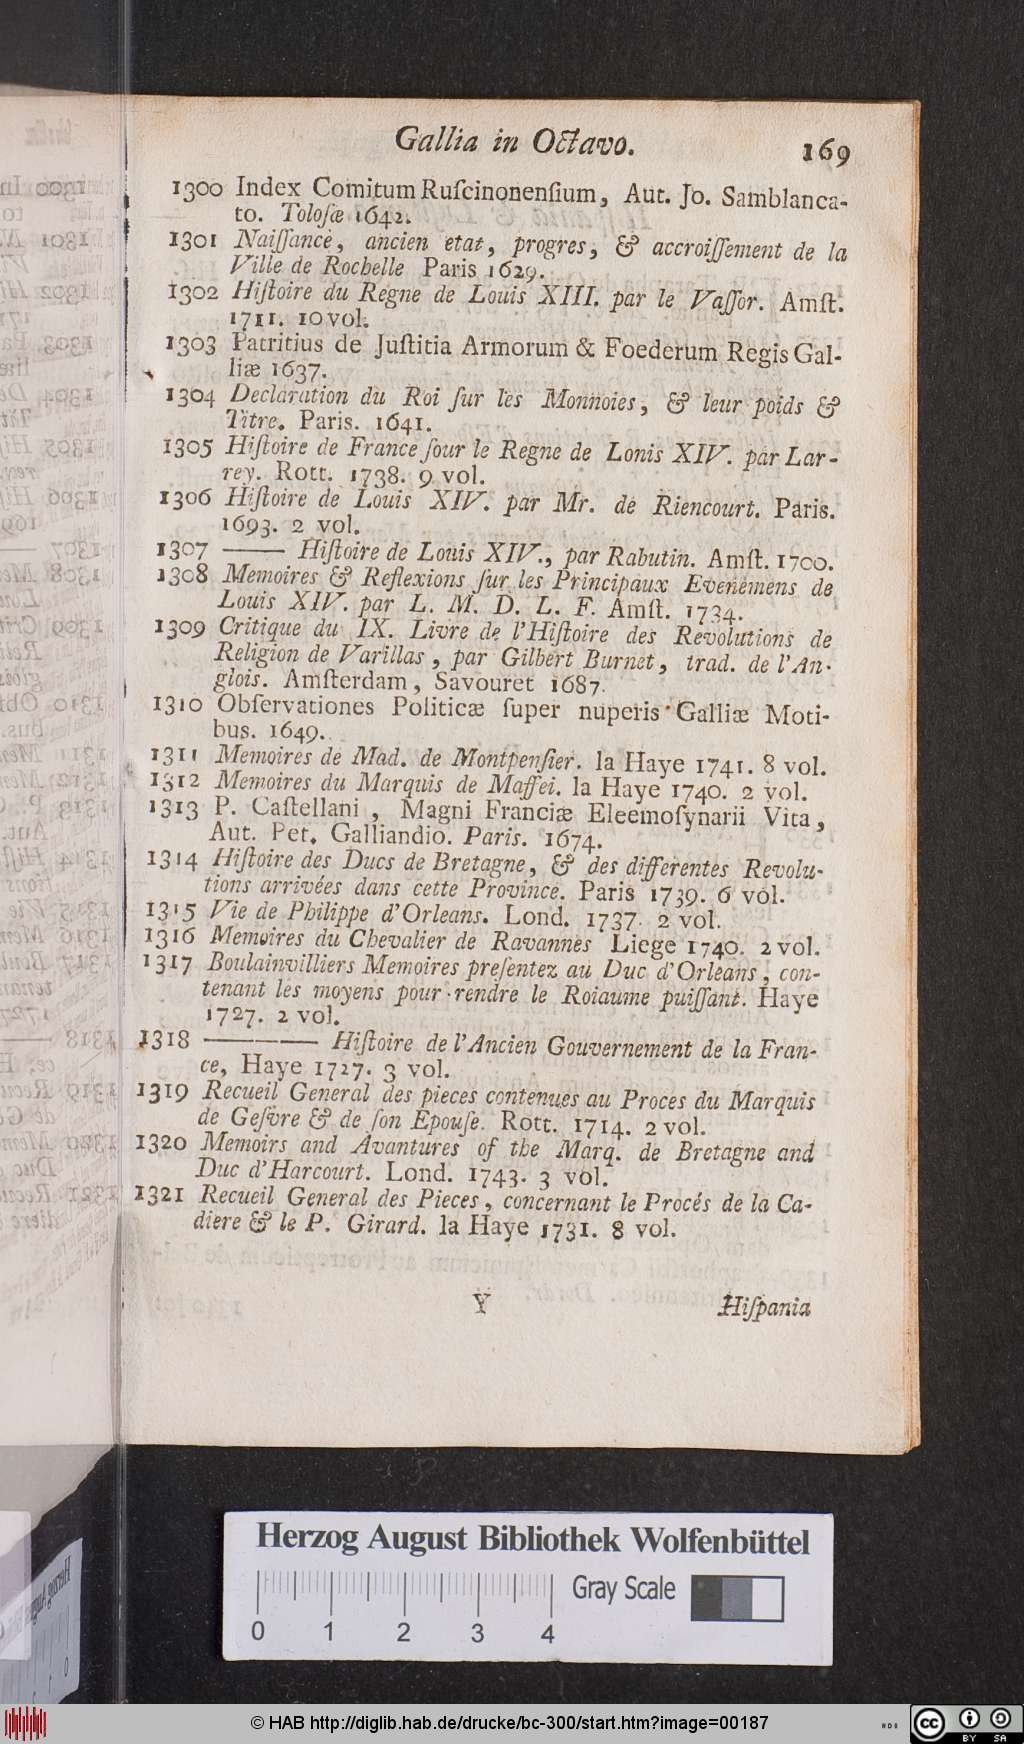 Gallia in Octavo. 169
1300 Index Comitum Ruſcinonenſium, Aut. Jo. Samblanca-
to. Toloſæ 1642.
1301 Naiſſance, ancien etat, progres, & accroiſſement de la
Ville de Rochelle Paris 1629.
1302 Hiſtoire du Regne de Louis XIII. par le Vaſſor. Amſt.
1711. 10 vol.
1303 Patritius de Juſtitia Armorum & Foederum Regis Gal-
liæ 1637.
1304 Declaration du Roi ſur les Monnoies, & leur poids &
Titre. Paris. 1641.
1305 Hiſtoire de France ſour le Regne de Lonis XIV. par Lar-
rey. Rott. 1738. 9 vol.
1306 Hiſtoire de Louis XIV. par Mr. de Riencourt. Paris.
1693. 2 vol.
1307 —— Hiſtoire de Louis XIV., par Rabutin. Amſt. 1700.
1308 Memoires & Reflexions ſur les Principaux Evenemens de
Louis XIV. par L. M. D. L. F. Amſt. 1734.
1309 Critique du IX. Livre de l'Hiſtoire des Revolutions de
Religion de Varillas, par Gilbert Burnet, trad. de l'An-
glois. Amſterdam, Savouret 1687.
1310 Obſervationes Politicæ ſuper nuperis Galliæ Moti-
bus. 1649.
1311 Memoires de Mad. de Montpenſier. la Haye 1741. 8 vol.
1312 Memoires du Marquis de Maffei. la Haye 1740. 2 vol.
1313 P. Caſtellani, Magni Franciæ Eleemoſynarii Vita,
Aut. Pet. Galliandio. Paris. 1674.
1314 Hiſtoire des Ducs de Bretagne, & des differentes Revolu-
tions arrivées dans cette Province. Paris 1739. 6 vol.
1315 Vie de Philippe d'Orleans. Lond. 1737. 2 vol.
1316 Memoires du Chevalier de Ravannes Liege 1740. 2 vol.
1317 Boulainvilliers Memoires preſentez au Duc d'Orleans, con-
tenant les moyens pour rendre le Roiaume puiſſant. Haye
1727. 2 vol.
1318 ——— Hiſtoire de l'Ancien Gouvernement de la Fran-
ce, Haye 1727. 3 vol.
1319 Recueil General des pieces contenues au Proces du Marquis
de Geſvre & de ſon Epouſe. Rott. 1714. 2 vol.
1320 Memoirs and Avantures of the Marq. de Bretagne and
Duc d'Harcourt. Lond. 1743. 3 vol.
1321 Recueil General des Pieces, concernant le Procés de la Ca-
diere & le P. Girard. la Haye 1731. 8 vol.
Y Hiſpania
Herzog August Bibliothek Wolfenbüttel
Gray Scale
0 1 2 3 4
© HAB http://diglib.hab.de/drucke/bc-300/start.htm?image=00187
cc BY SA